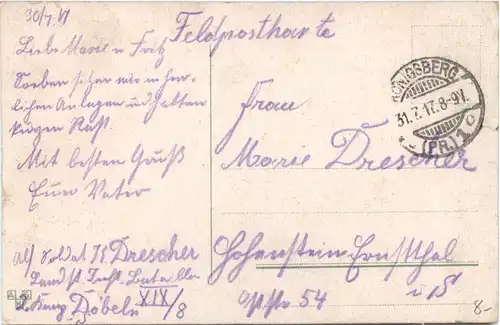 30/7. 17
Feldpostkarte
Liebe Marie u Fritz
Soeben sitzen wir in herr-
lichen Anlagen und halten
kurzen Rast.
Mit besten Gruß
Euer Vater
KÖNIGSBERG
31.7.17. 8-9V.
(PR.) 1
Frau
Marie Drescher
Hohenstein-Ernstthal
54
i/S
Abs Soldat K Drescher
Landst Inft. Bataillon
Döbeln XIX/8
8-